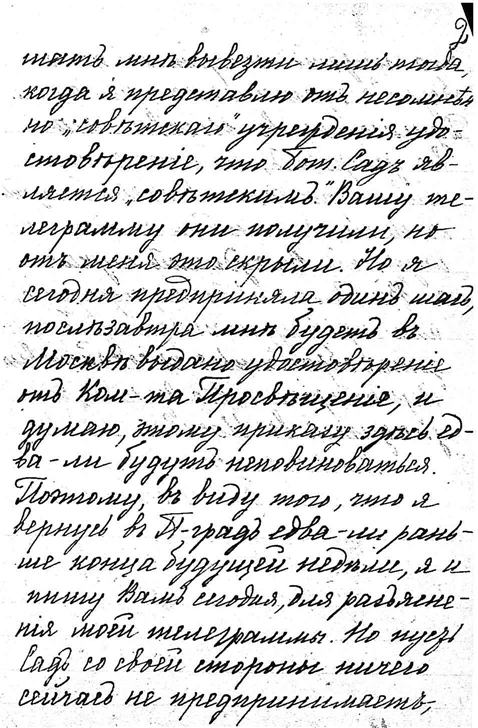 2
шатъ мнѣ вывезти лишь тогда,
когда я представлю отъ несомнѣн-
но „совѣтскаго" учрежденія удо-
стовѣреніе, что Бот. Садъ яв-
ляется „совѣтскимъ." Вашу те-
леграмму они получили, но
отъ меня это скрыли. Но я
сегодня предприняла одинъ шагъ,
послѣзавтра мнѣ будетъ въ
Москвѣ выдано удостовѣреніе
отъ Ком-та Просвѣщенія, и
думаю, этому приказу здѣсь ед-
ва-ли будутъ неповиноваться.
Поэтому, въ виду того, что я
вернусь въ П-градъ едва-ли рань-
ше конца будущей недѣли, я и
пишу Вамъ сегодня, для разъясне-
нія моей телеграммы. Но пусть
Садъ со своей стороны ничего
сейчасъ не предпринимаетъ,